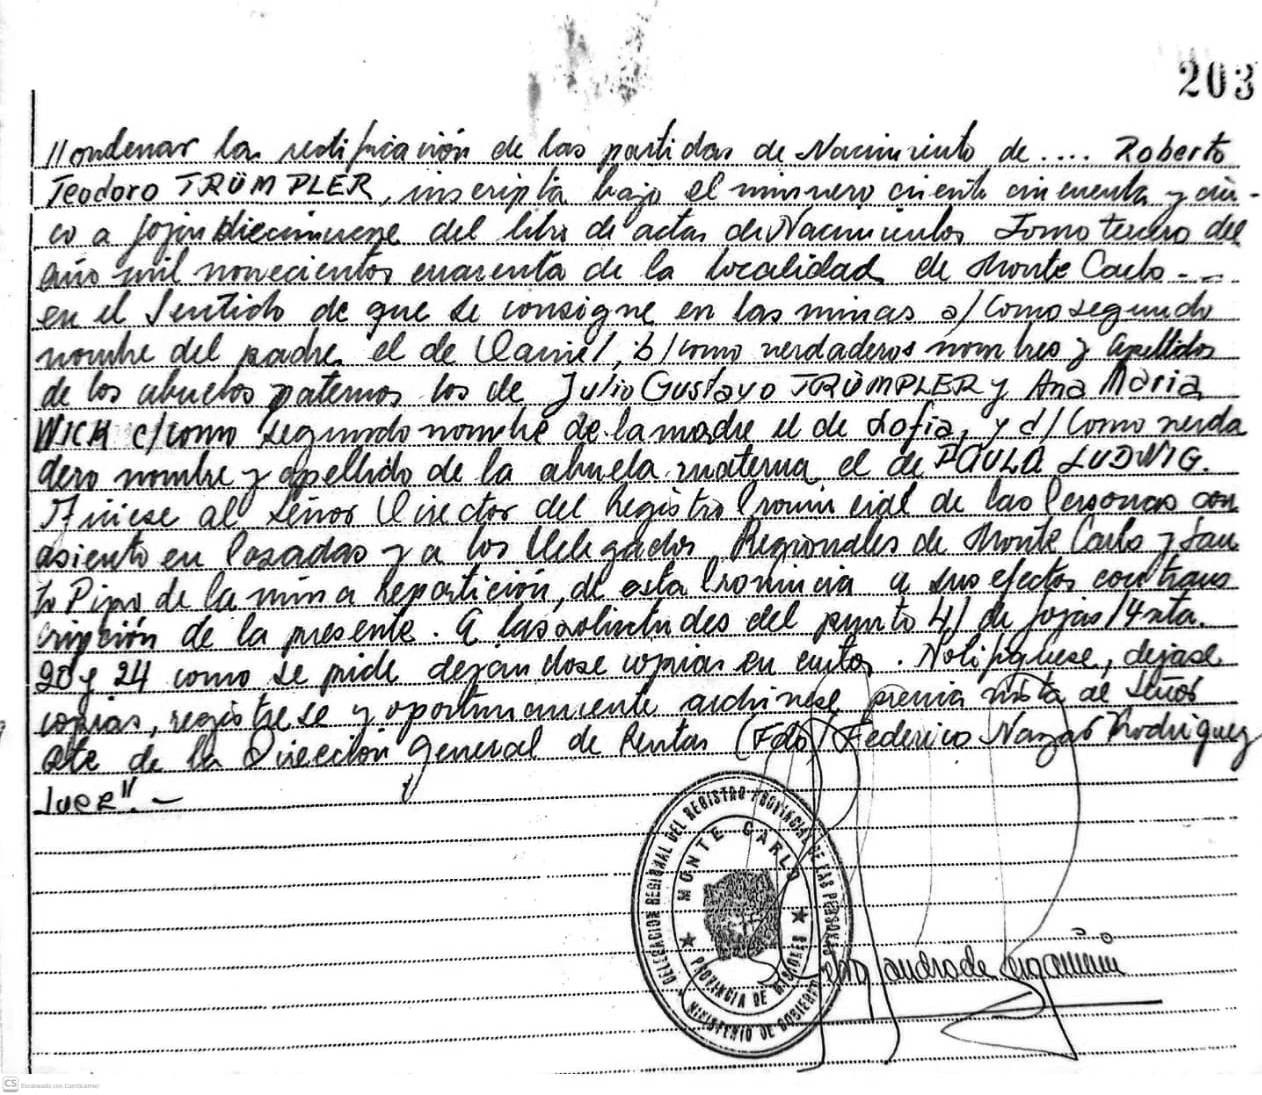 203
//ordenar la rectificación de las partidas de Nacimiento de .... Roberto
Teodoro TRÜMPLER, inscripta bajo el número ciento cincuenta y cin-
co a fojas diecinueve del libro de actas de Nacimientos Tomo tercero del
año mil novecientos cuarenta de la localidad de Monte Carlo -.-
en el Sentido de que se consigne en las mismas a/ como segundo
nombre del padre el de Daniel, b/ como verdaderos nombres y apellidos
de los abuelos paternos los de Julio Gustavo TRÜMPLER y Ana Maria
WICK c/ como segundo nombre de la madre el de Sofia, y d/ como verda
dero nombre y apellido de la abuela materna el de PAULA LUDWIG.
Ofíciese al Señor Director del Registro Provincial de las Personas con
asiento en Posadas y a los Delegados Regionales de Monte Carlo y San
to Pipo de la misma Repartición, de esta Provincia a sus efectos con trans
cripción de la presente. A las solicitudes del punto 4/ de fojas 14 vta.
20 y 24 como se pide dejándose copias en autos. Notifíquese, déjase
copias, regístrese y oportunamente archívese previa vista al Señor
Rte de la Dirección General de Rentas (Fdo) Federico Nazar Rodriguez
Juez". -
DELEGACION REGIONAL DEL REGISTRO PROVINCIAL DE LAS PERSONAS
MONTE CARLO
PROVINCIA DE MISIONES
MINISTERIO DE GOBIERNO
CS Escaneado con CamScanner